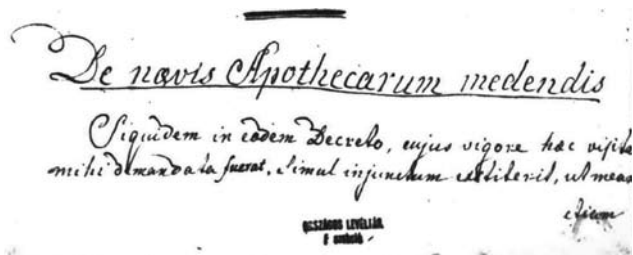 De nævis Apothecarum medendis
Siquidem in eodem Decreto, cujus vigore hæc visita
mihi demandata fuerat, simul injunctum extiterit, ut mea
etiam
ORSZÁGOS LEVÉLTÁR